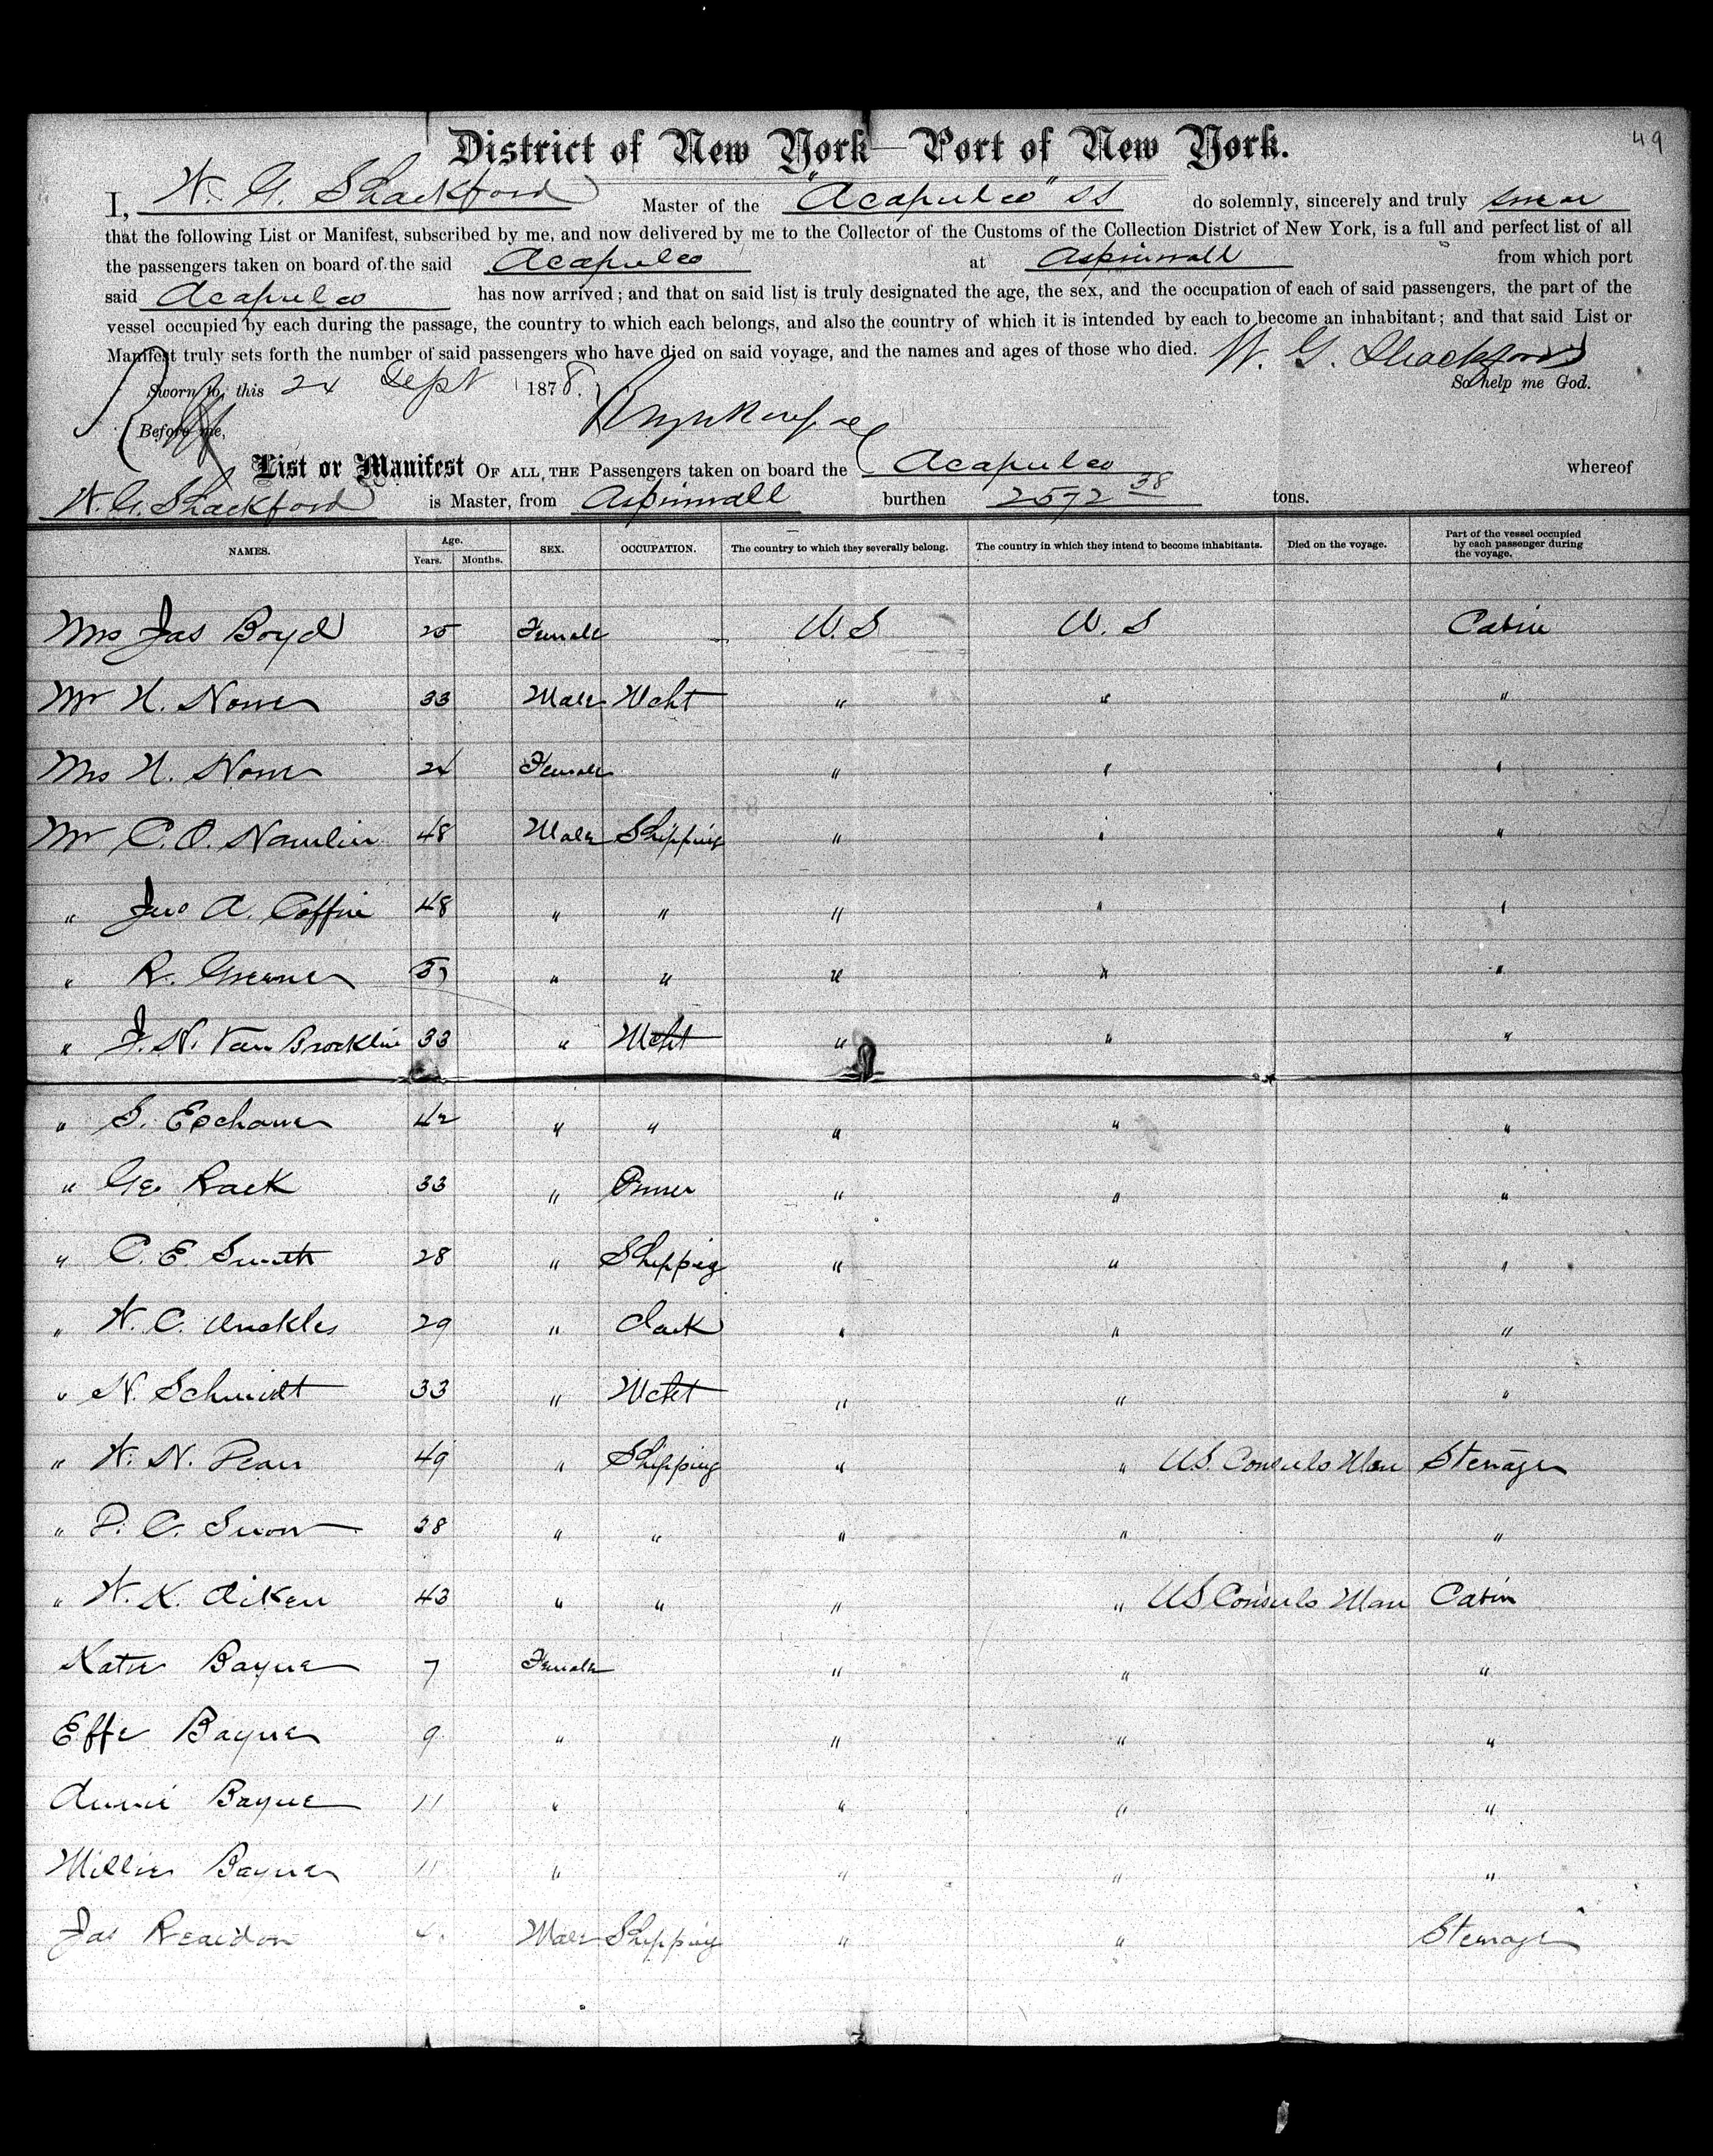 49
District of New York—Port of New York.
I, W. G. Shackford Master of the "Acapulco" SS do solemnly, sincerely and truly swear
that the following List or Manifest, subscribed by me, and now delivered by me to the Collector of the Customs of the Collection District of New York, is a full and perfect list of all
the passengers taken on board of the said Acapulco at Aspinwall from which port
said Acapulco has now arrived; and that on said list is truly designated the age, the sex, and the occupation of each of said passengers, the part of the
vessel occupied by each during the passage, the country to which each belongs, and also the country of which it is intended by each to become an inhabitant; and that said List or
Manifest truly sets forth the number of said passengers who have died on said voyage, and the names and ages of those who died. W. G. Shackford
Sworn to, this 24 Sept 1878. So help me God.
Before me,
List or Manifest OF ALL THE Passengers taken on board the Acapulco whereof
W. G. Shackford is Master, from Aspinwall burthen 2572 38 tons.
NAMES. Age. Years. Months. SEX. OCCUPATION. The country to which they severally belong. The country in which they intend to become inhabitants. Died on the voyage. Part of the vessel occupied by each passenger during the voyage.
Mrs Jas Boyd 25 Female U.S U.S Cabin
Mr H. 33 Male Mcht " " "
Mrs H. 24 Female " " "
Mr C. O. Hamlin 48 Male Shipping " " "
" Jno A. Coffin 48 " " " " "
" R. " " " " "
" J. H. Van Brocklin 33 " Mcht " " "
" S. 42 " " " " "
" Geo Rack 33 " " " "
" C. E. Smith 28 " Shipping " " "
" W. C. 29 " Clerk " " "
" H. Schmidt 33 " Mcht " " "
" W. H. 49 " Shipping " " US. Consuls Man Steerage
" P. C. Snow 28 " " " " "
" W. K. Aiken 43 " " " " US Consuls Man Cabin
Katie Bayne 7 Female " " "
Effie Bayne 9 " " " "
Annie Bayne 11 " " " "
Millie Bayne 11 " " " "
Jas Reardon Male Shipping " " Steerage